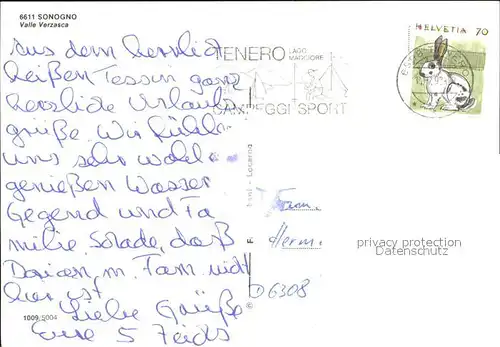 6611 SONOGNO
Valle Verzasca
Aus dem herrlich
heißen Tessin ganz
herzliche Urlaubs
grüße. Wir fühlen
uns sehr wohl
genießen Wasser
Gegend und Fa
milie. Schade, daß
Dorian m. Fam. nicht
hier ist.
Liebe Grüße
Eure 5
TENERO LAGO
MAGGIORE
CAMPEGGI SPORT
HELVETIA 70
Locarno
Fam.
Herm.
D 6308
privacy protection
Datenschutz
1009 5004
©